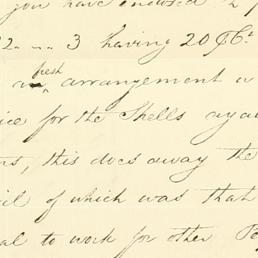 you have endorsed
2 .... 3 having 20
fresh
arrangement
ice for the Shells aga
ns, this does away the
il of which was that
al to work for other